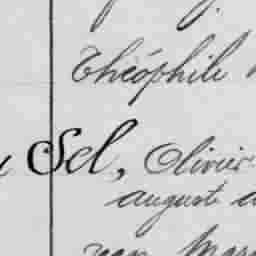 Théophile
Sel, Olivier
auguste